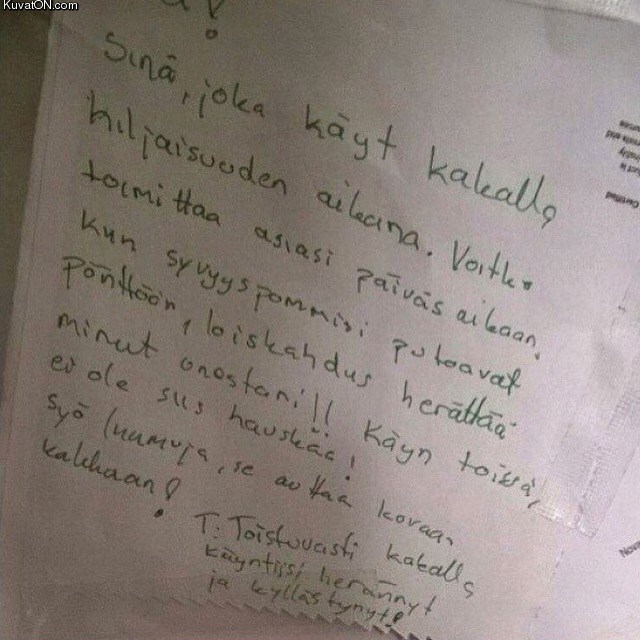 KuvatON.com
!
Sinä, joka käyt kakalla
hiljaisuuden aikana. Voitko
toimittaa asiasi päiväs aikaan,
kun syvyyspommisi putoavat
pönttöön, loiskahdus herättää
minut unestani!! Käyn töissä,
ei ole siis hauskaa!
Syö luumuja, se auttaa kovaan
kakkaan!
T: Toistuvasti kakalla
käyntiisi herännyt
ja kyllästynyt!